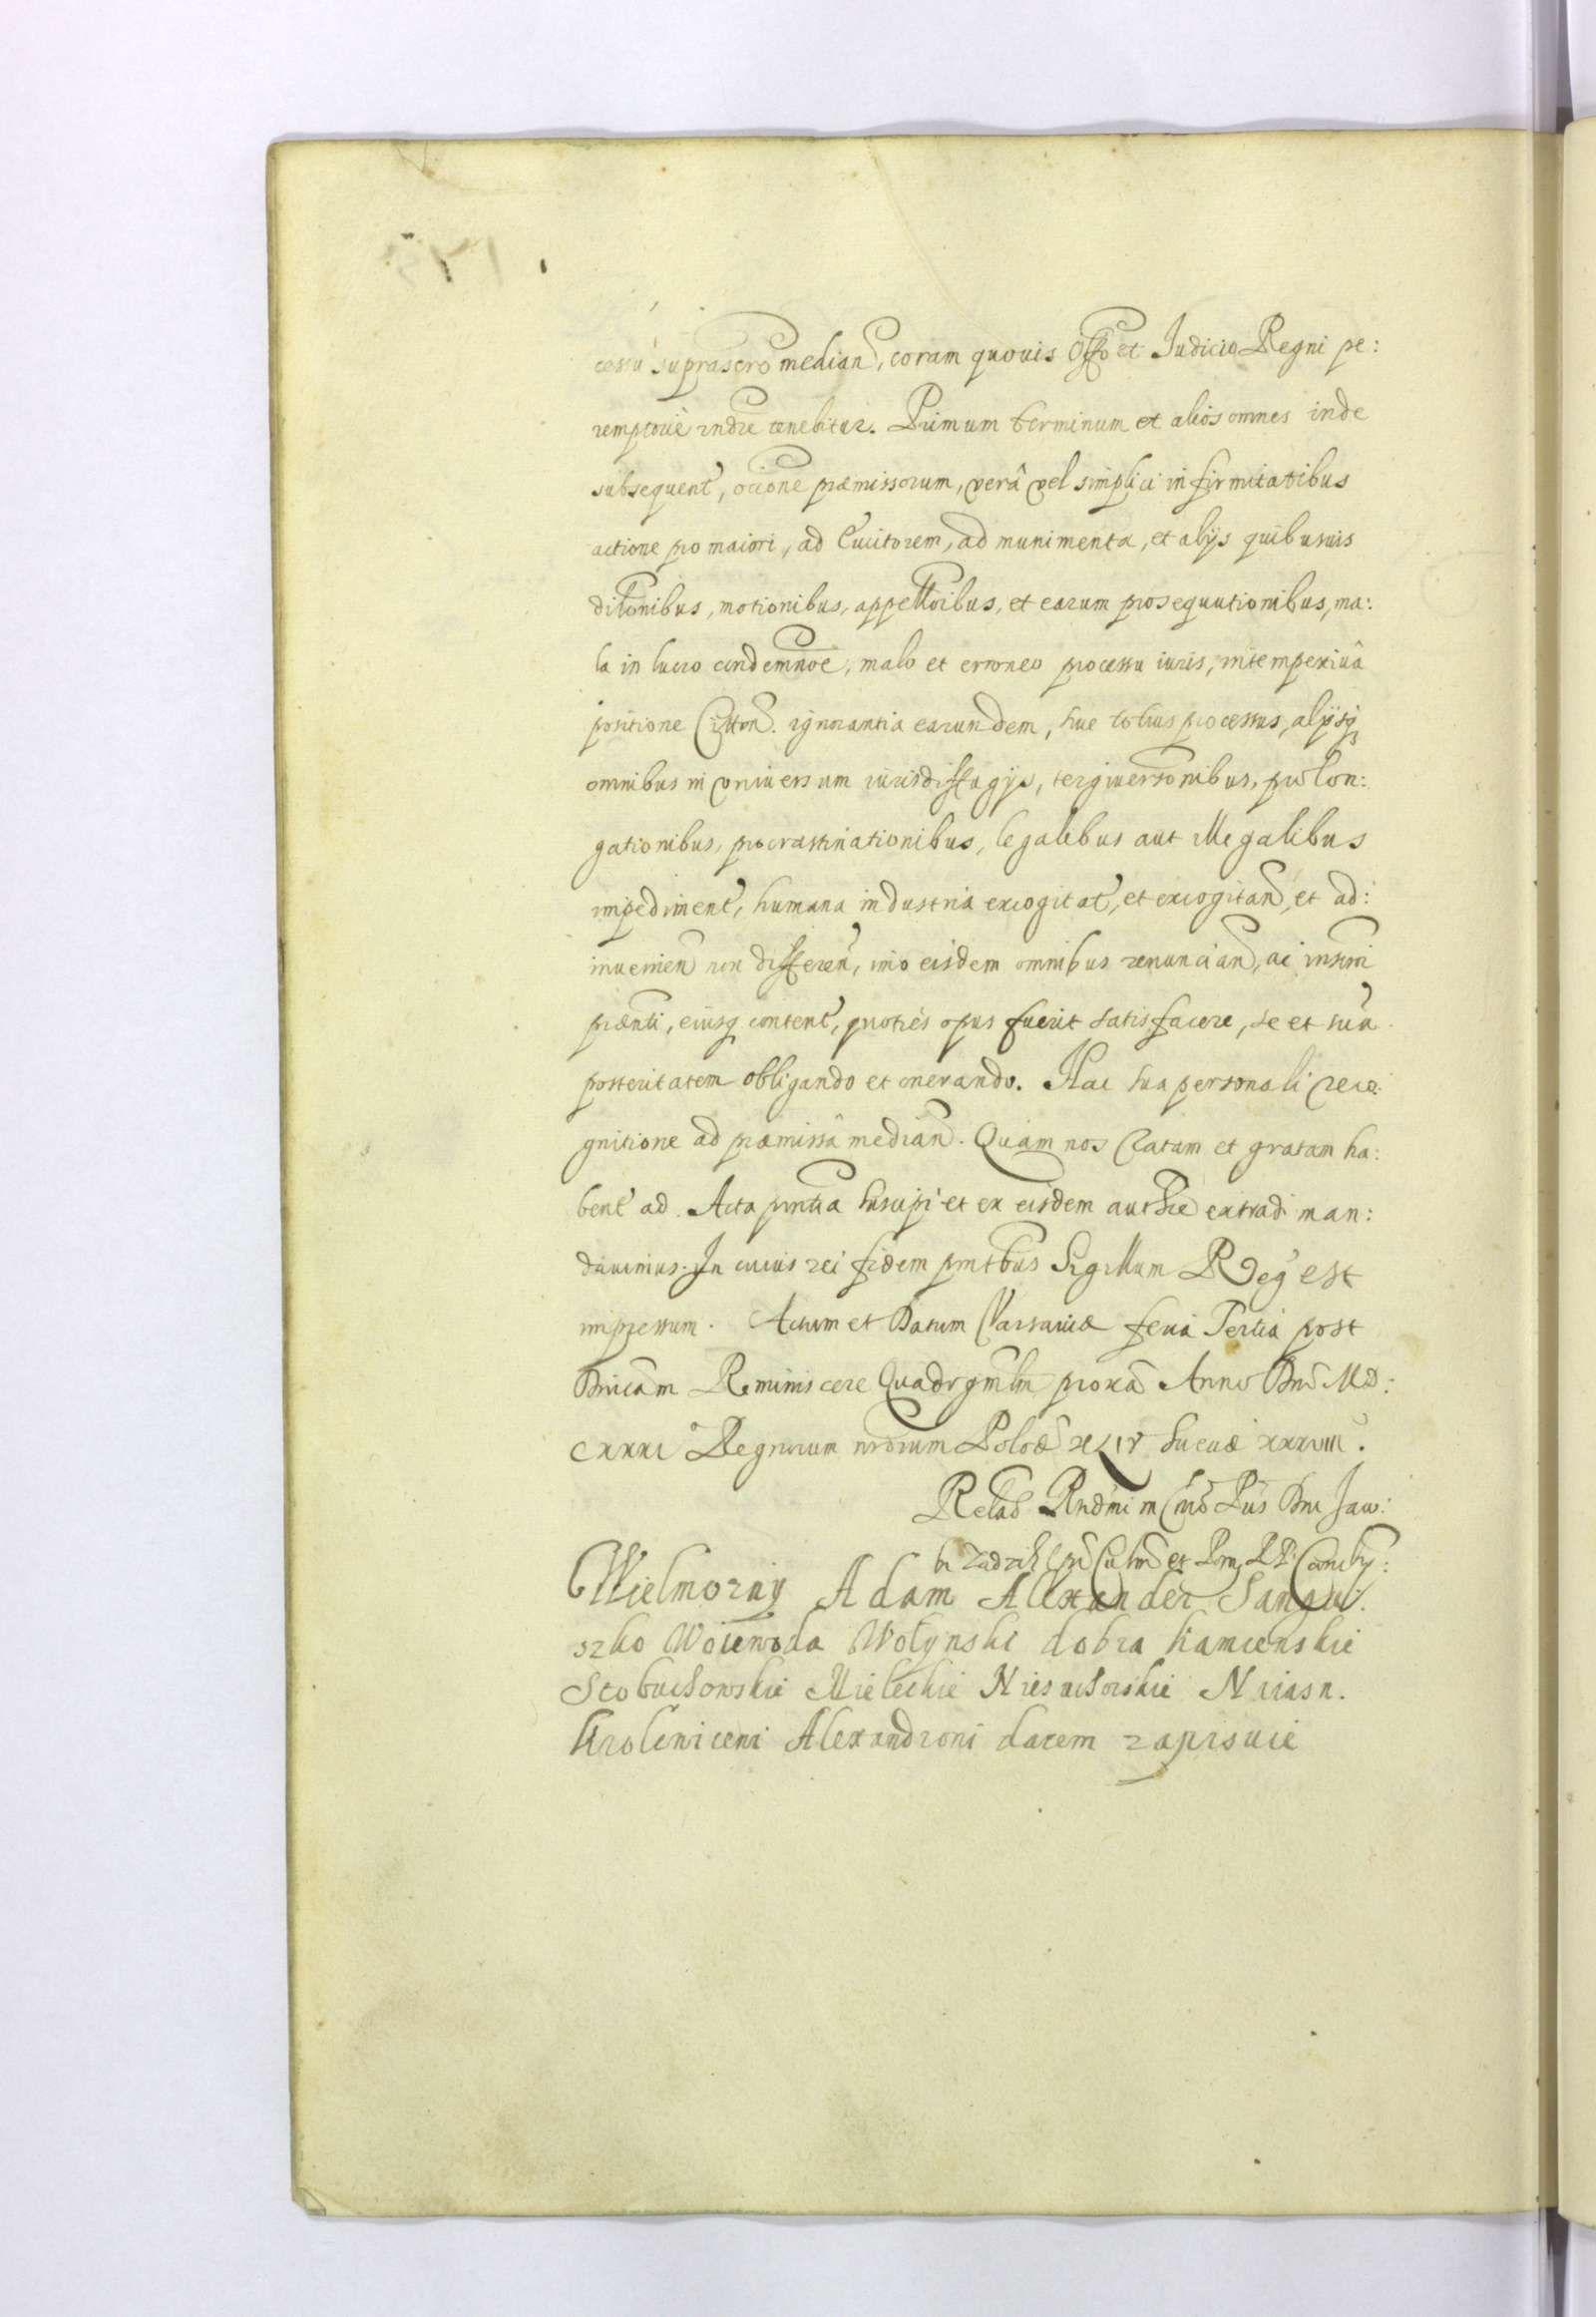 cessu suprascro median, coram quouis Offo et Judicio Regni pe:
remptorie rndre tenebitur. Primum terminum et alios omnes inde
subsequent, occione præmissorum, verâ vel simplici infirmitatibus
actione pro maiori, ad Euictorem, ad munimenta, et alijs quibusuis
dilonibus, motionibus, appellõibus, et earum prosequutionibus, ma:
la in lucro condemnõe, malo et erroneo processu iuris, intempestiuâ
positione Citton. ignorantia earundem, siue totius processus, alijsq
omnibus in vniuersum iuris diffugijs, tergiuersõnibus, prolon:
gationibus, procrastinationibus, legalibus aut illegalibus
impediment, humana industria excogitat, et excogitan, et ad:
inuenien non differen, imo eisdem omnibus renuncian, ac inscrõni
prænti, eiusq content, quoties opus fuerit satisfacere, se et suã
posteritatem obligando et onerando. Hac sua personali reco:
gnitione ad præmissa median. Quam nos ratam et gratam ha:
bent ad Acta pñtia suscipi et ex eisdem authce extradi man:
dauimus. In cuius rei fidem pñtibus Sigillum Reg est
impressum. Actum et Datum Varsauiæ feria Tertia post
Dnicam Reminiscere Quadrgmlm proxã Anno Dni MD:
CXXXI Regnorum nrorum Poloæ XLIV Sueciæ XXXVIII.
Relao Rndmi in Chro Pris Dni Jaco:
bi Zadzik Epi Culmen et Pom, R P Cancly:
Wielmozny Adam Alexander Sangu.
szko Woiewoda Wołynski dobra Kamienskie
Stobuchowskie Mieleckie Niesuchoiskie N iiasn.
Krolewiceni Alexandroni darem zapisuie